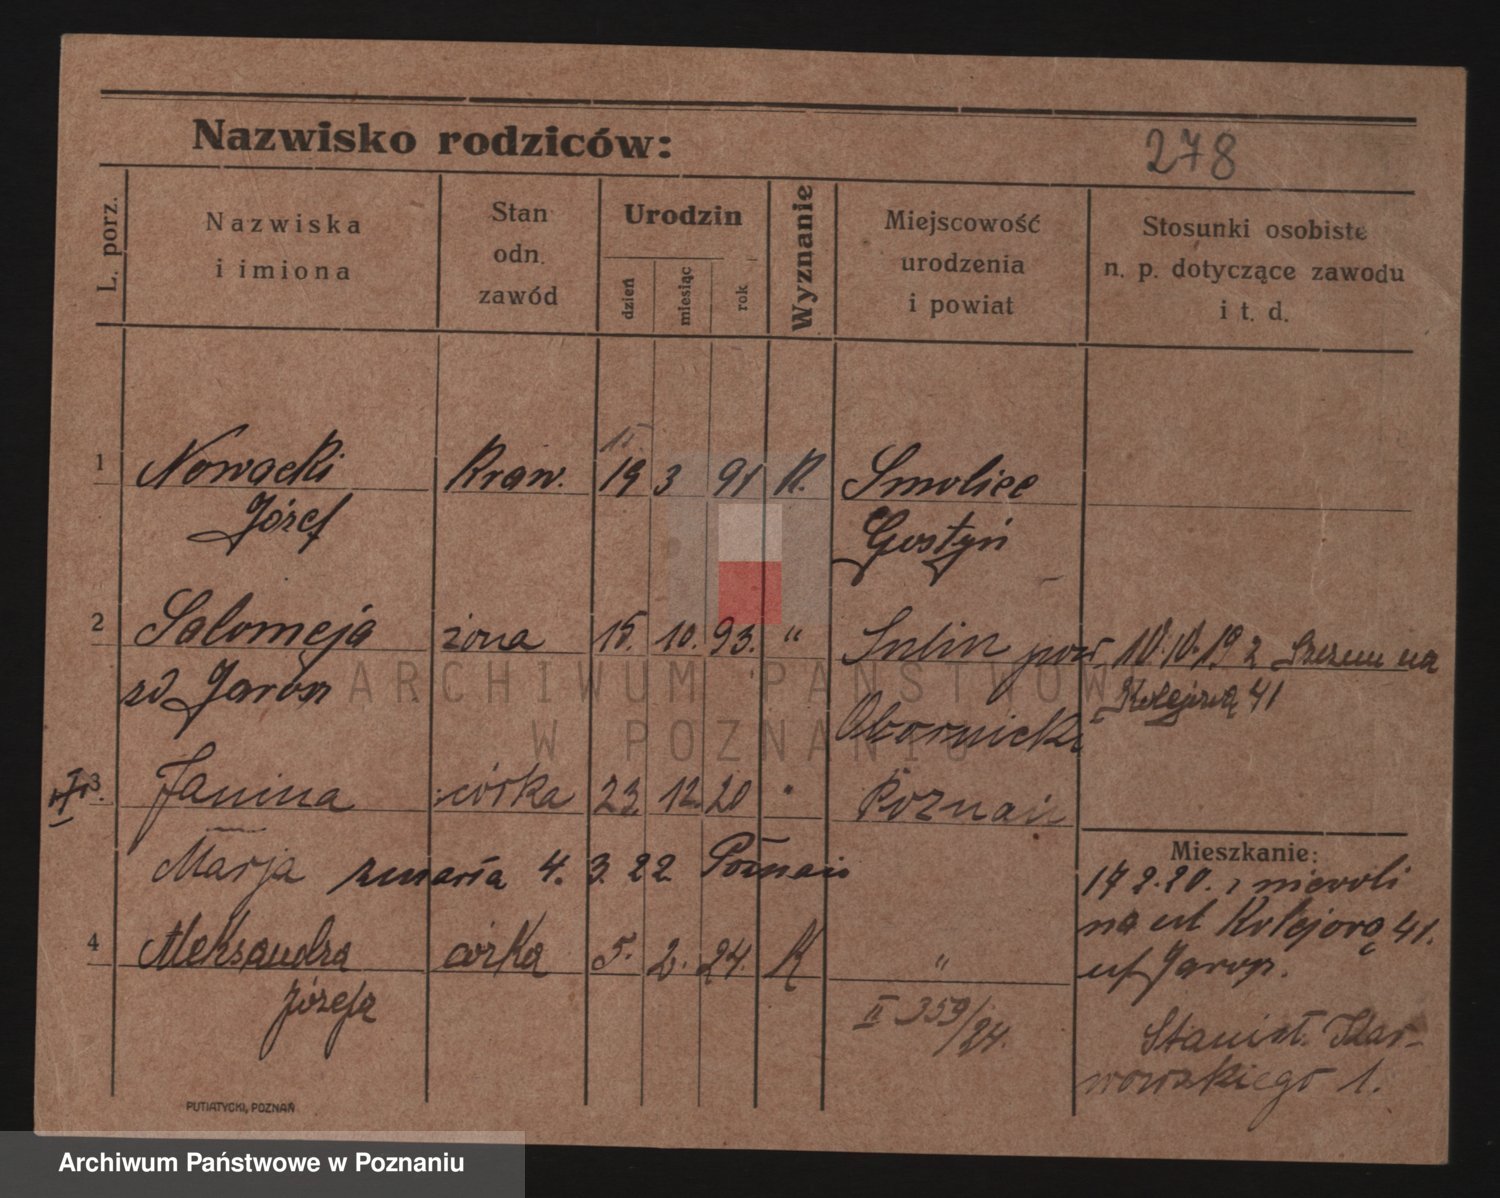 Nazwisko rodziców:
278
L. porz.
Nazwiska
i imiona
Stan
odn.
zawód
Urodzin
dzień
miesiąc
rok
Wyznanie
Miejscowość
urodzenia
i powiat
Stosunki osobiste
n. p. dotyczące zawodu
i t. d.
15.
1 Nowacki Kraw. 19 3 91 K. Smolice
Józef Gostyń
2 Salomeja żona 15. 10. 93. " pow.
zd Jarosz na
Obornicki 41
3 Janina córka 23. 12. 20 " Poznań
Marja zmarła 4. 3. 22. Poznań
Mieszkanie:
17 2.20. z niewoli
4 Aleksandra córka 5. 2. 24. K "
na ul Kolejową 41.
Józefa
II 359/24.
Stanisł. Kar-
wowskiego 1.
PUTIATYCKI, POZNAŃ
ARCHIWUM PAŃSTWOW
W POZNANIU
Archiwum Państwowe w Poznaniu